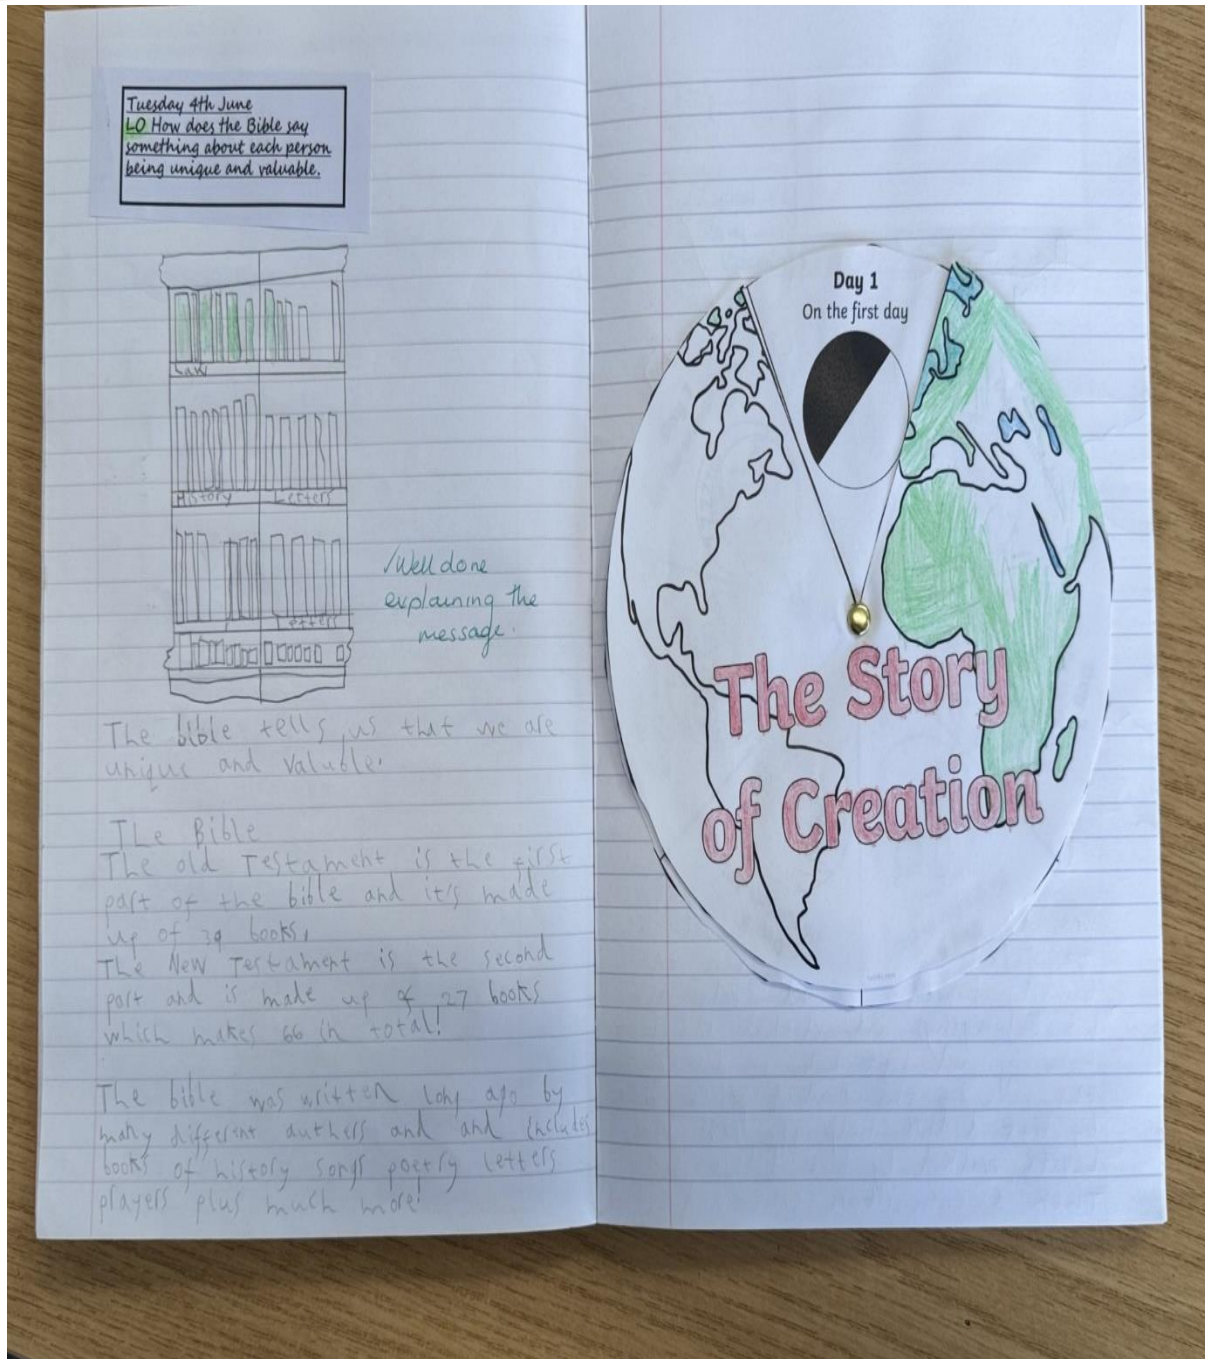 Tuesday 4th June
LO How does the Bible say
something about each person
being unique and valuable.
Law
History Letters
Letters
✓Well done
explaining the
message.
The bible tells us that we are
unique and valuble.
The Bible
The old Testament is the first
part of the bible and it's made
up of 39 books,
The New Testament is the second
part and is made up of 27 books
which makes 66 in total!
The bible was written long ago by
many different authers and and includes
books of history songs poetry letters
prayers plus much more!
Day 1
On the first day
The Story
of Creation